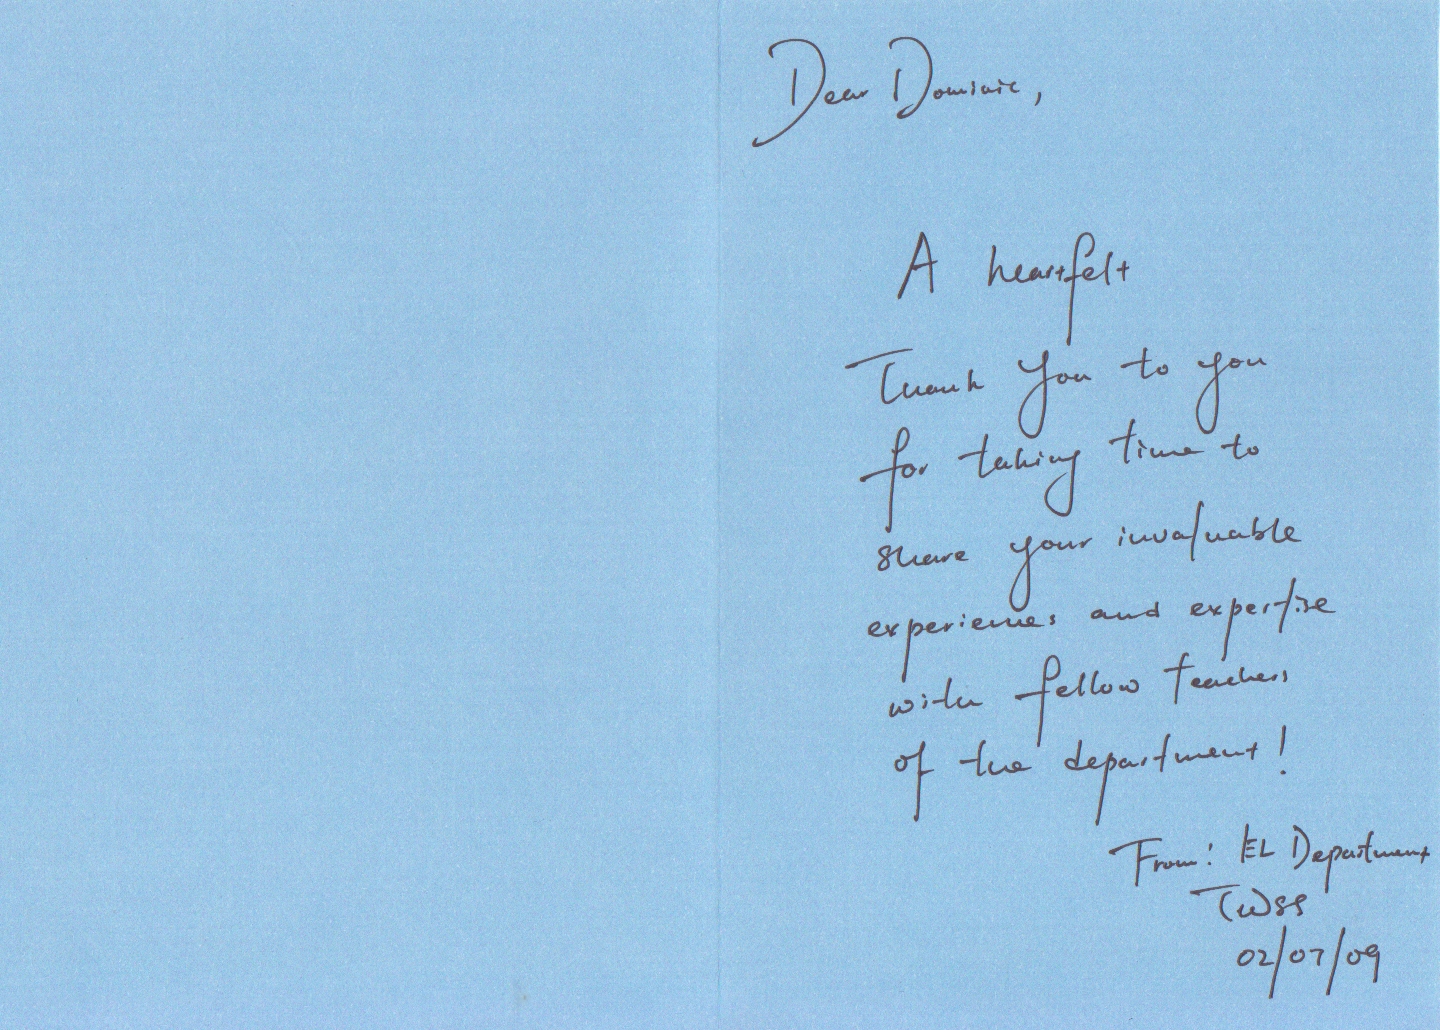 Dear Dominic,
A heartfelt
Thank you to you
for taking time to
share your invaluable
experiences and expertise
with fellow teachers
of the department!
From: EL Department
TWSS
02/07/09